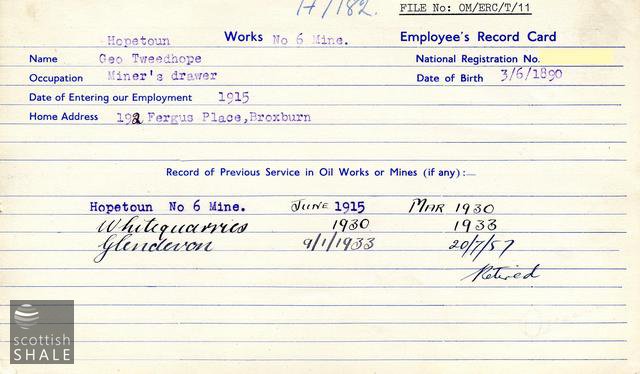 H/182. FILE No: OM/ERC/T/11
Hopetoun Works No 6 Mine. Employee's Record Card
Name Geo Tweedhope National Registration No.
Occupation Miner's drawer Date of Birth 3/6/1890
Date of Entering our Employment 1915
Home Address 192 Fergus Place,Broxburn
Record of Previous Service in Oil Works or Mines (if any):—
Hopetoun No 6 Mine. JUNE 1915 MAR 1930
Whitequarries 1930 1933
Glendevon 9/1/1933 20/7/57
Retired
scottish
SHALE